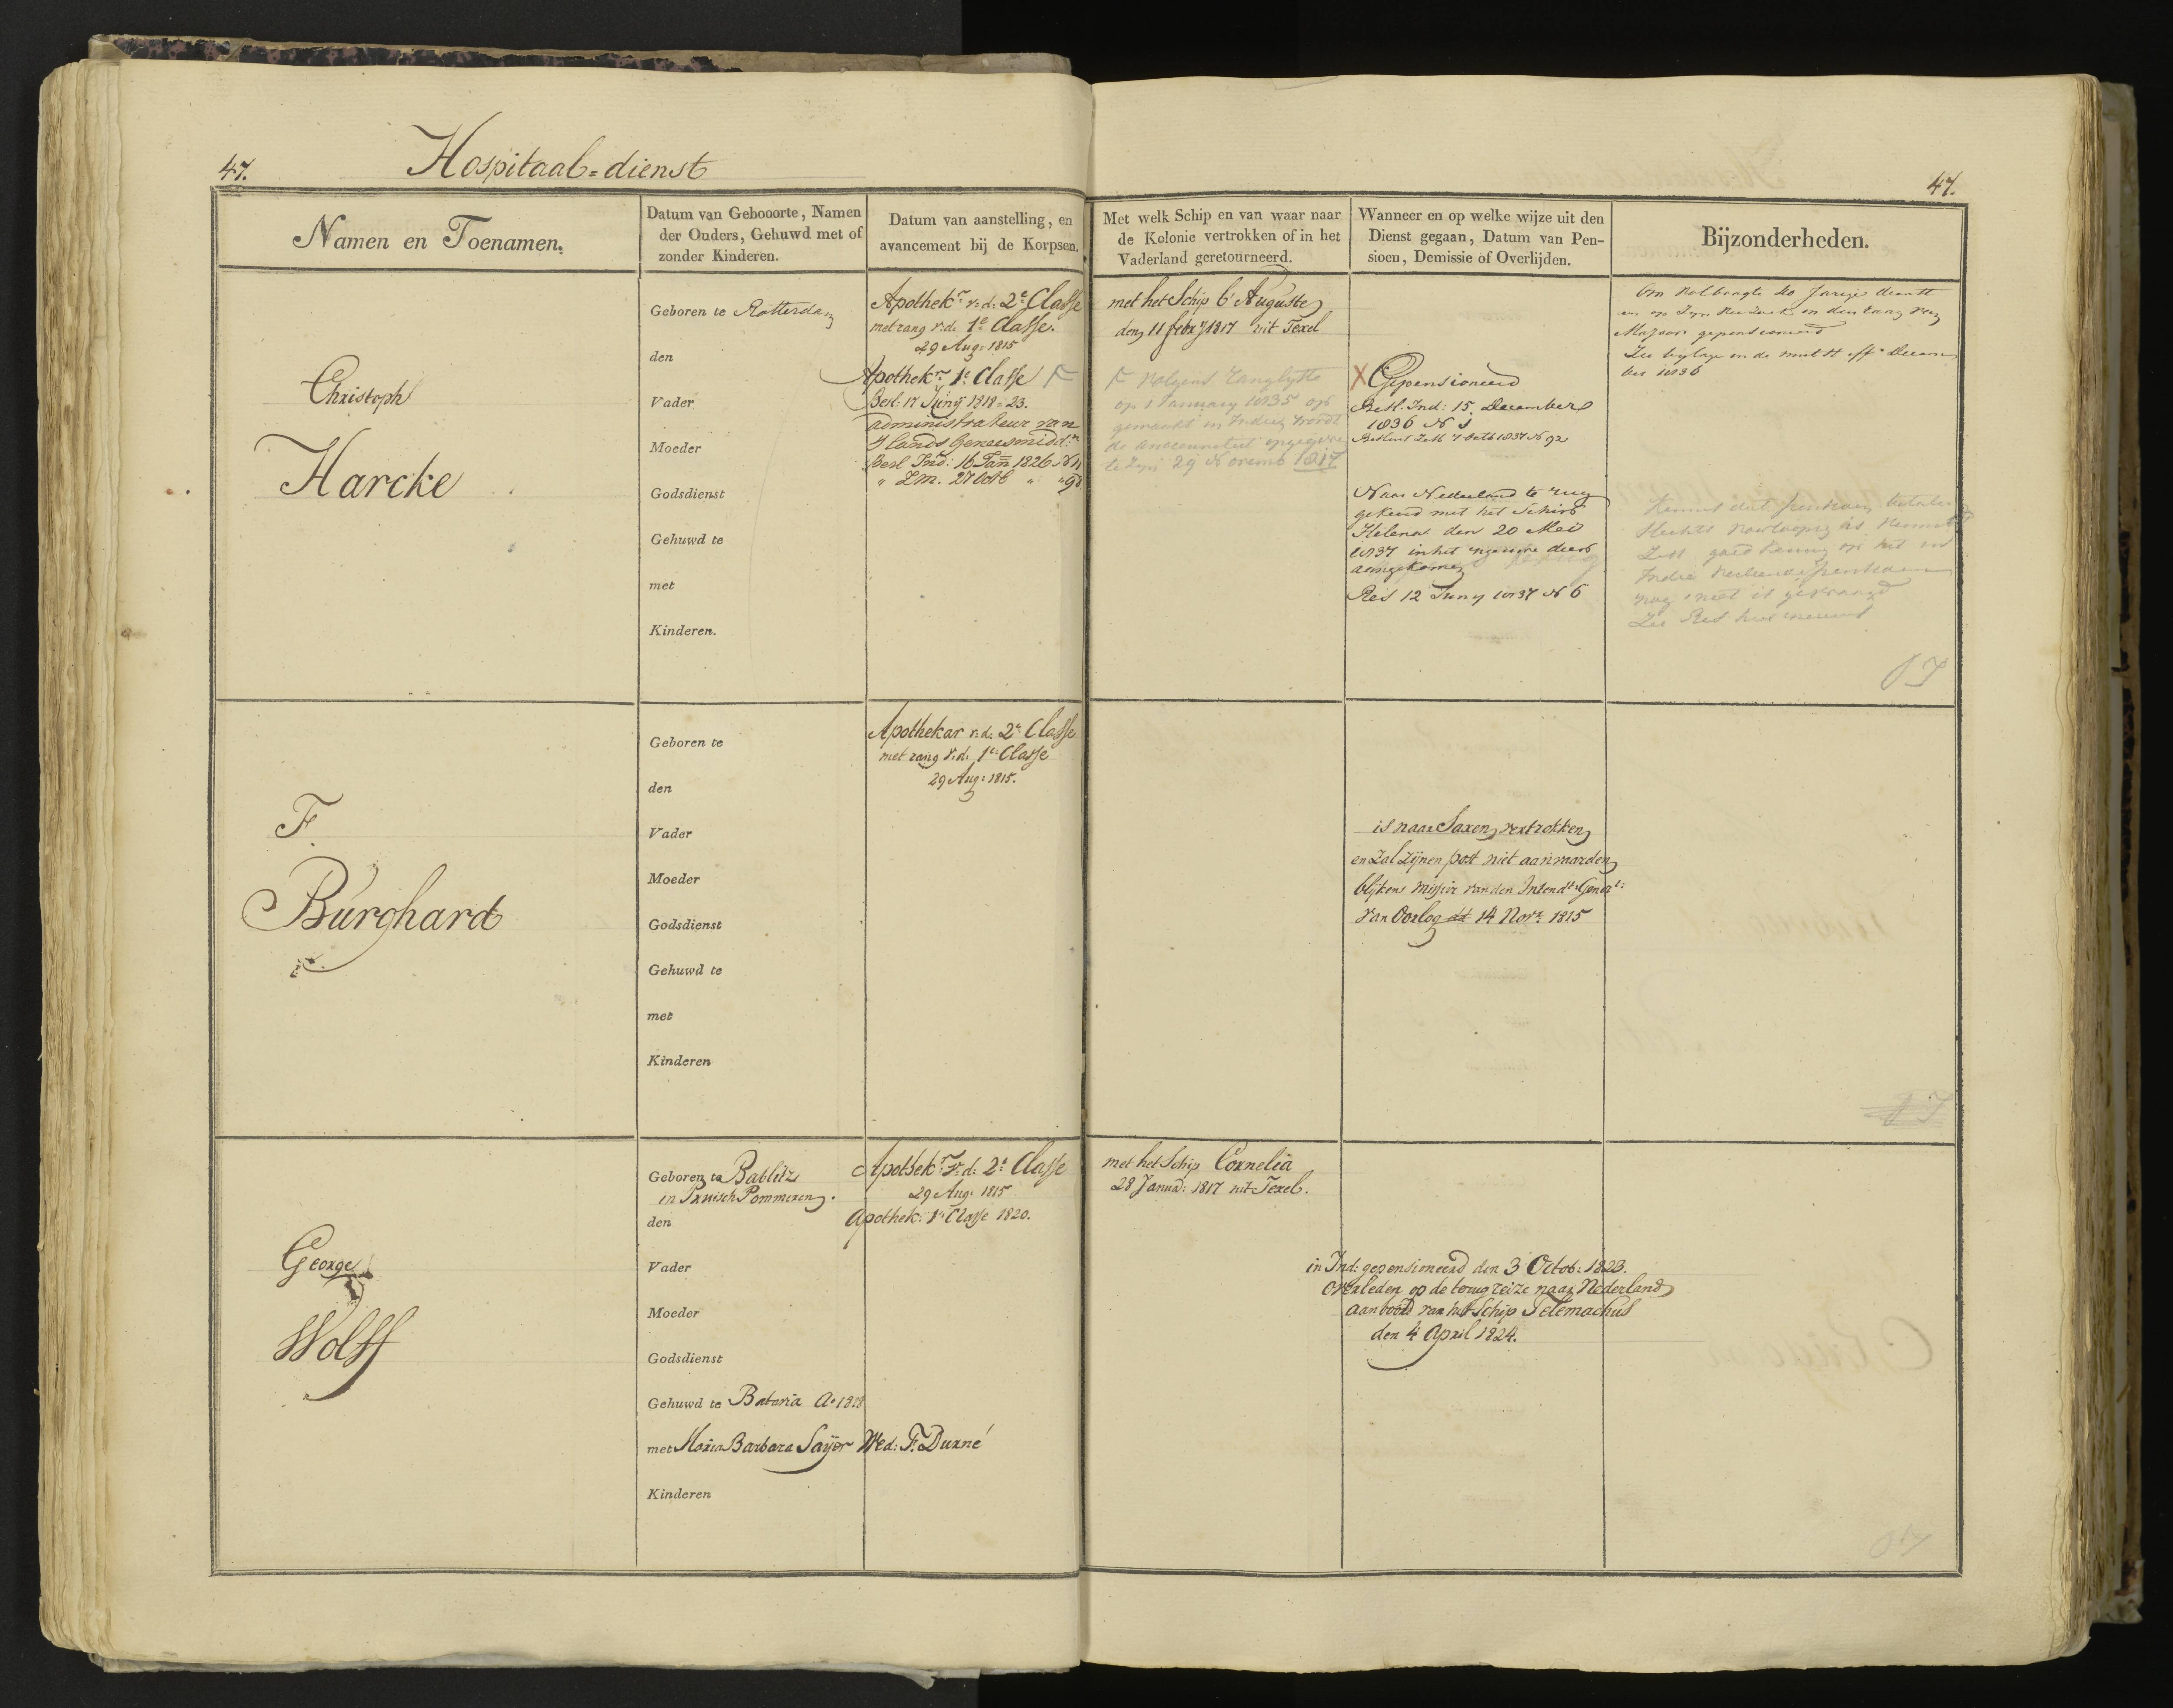 47.
Hospitaal=dienst
47.
Namen en Toenamen.
Datum van Gebooorte, Namen
der Ouders, Gehuwd met of
zonder Kinderen.
Datum van aanstelling, en
avancement bij de Korpsen.
Met welk Schip en van waar naar
de Kolonie vertrokken of in het
Vaderland geretourneerd.
Wanneer en op welke wijze uit den
Dienst gegaan, Datum van Pen-
sioen, Demissie of Overlijden.
Bijzonderheden.
Christoph
Harcke
Geboren te Rotterdam
den
Vader
Moeder
Godsdienst
Gehuwd te
met
Kinderen.
Apothekr. v:d: 2e Classe
met rang v:d: 1e Classe.
29 Aug: 1815
Apothekr. 1e Classe F
Besl: 17 Junij 1818=23.
administrateur van
s'lands Geneesmidd:n
Besl Ind: 16 Jan 1826 N 11
" Z.M. 27 Oct " " 98
met het Schip l'Auguste
den 11 feb 1817 uit Texel
F volgens ranglyste
op 1 January 1835 op
gemaakt in Indien wordt
de ancienniteit opgegeven
te zyn 29 Novemb 1817
X Gepensioneerd
Besl. Ind: 15 December
1836 N 1
Besluit Z.M. 7 Octb 1837 N 92
Naar Nederland te rug
gekeerd met het Schip
Helena den 20 Mei
1837 in het nieuwe diep
aangekomen
Res 12 Juny 1837 N 6
Om volbragte 20 Jarige dienst
en op zyn verzoek in den rang van
Majoor gepensioneerd
Zie bylage in de mutst off Decem
ber 1836
slechts voorloopig als
goedkeuring op het in
Indie verleende pensioen
nog niet is
Zie Res hier nevens
F.
Burghard
Geboren te
den
Vader
Moeder
Godsdienst
Gehuwd te
met
Kinderen
Apothekar v:d: 2e Classe
met rang v:d: 1e Classe
29 Aug: 1815.
is naar Saxen vertrokken
en zal zijnen post niet aanvaarden
blijkens missive van den Intendt: Generl:
van Oorlog dd 14 Novr 1815
George
Wolff
Geboren te Bablitz
in Pruisch Pommeren.
den
Vader
Moeder
Godsdienst
Gehuwd te Batavia Ao 1818
met Maria Barbara Saijer Wed: F. Durné
Kinderen
Apothekr. v:d: 2e Classe
29 Aug: 1815
Apothek: 1e Classe 1820.
met het Schip Cornelia
28 Januar: 1817 uit Texel.
in Ind: gepensioneerd den 3 Octob: 1823.
overleden op de terug reize naar Nederland
aan boord van het Schip Telemachus
den 4 April 1824.